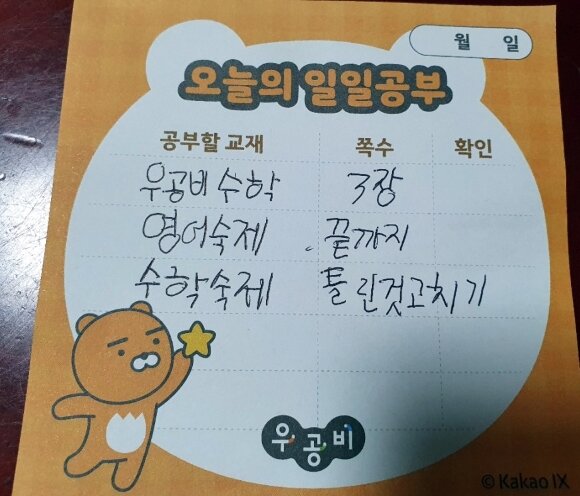 월 일
오늘의 일일공부
공부할 교재 쪽수 확인
우공비 수학 3장
영어숙제 끝까지
수학숙제 틀린것고치기
우공비
© Kakao IX